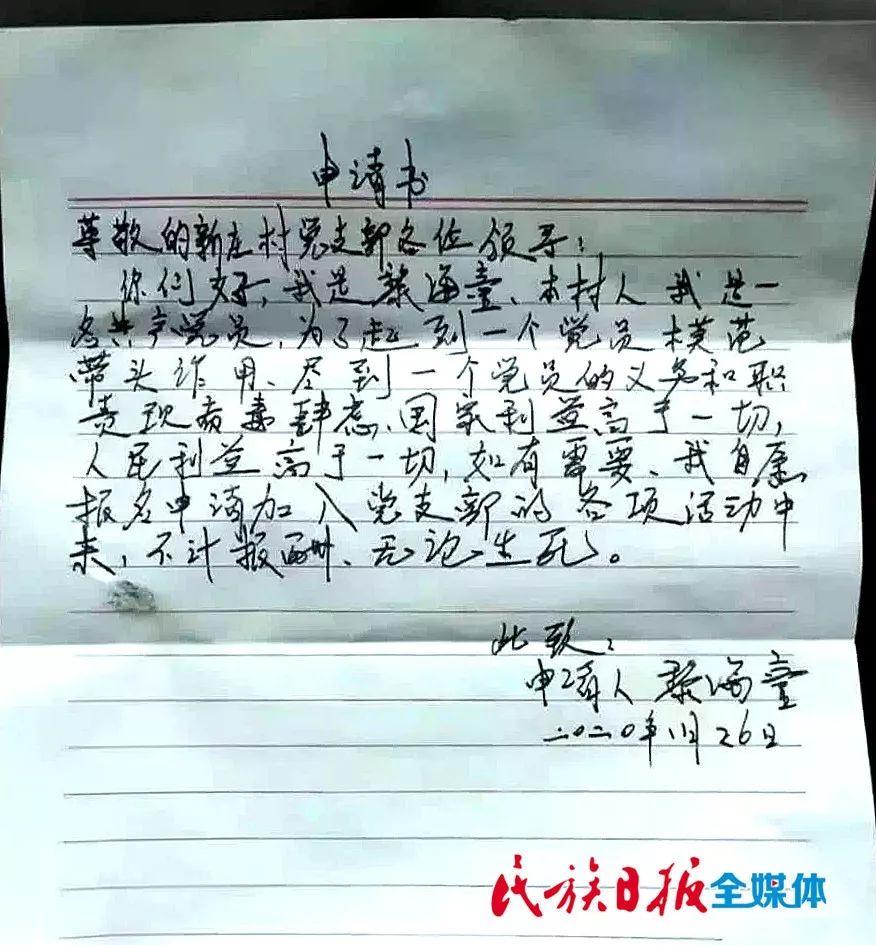 申请书
尊敬的新庄村党支部各位领导：
你们好，我是海童、本村人我是一
名共产党员，为了起到一个党员模范
带头作用、尽到一个党员的义务和职
责现病毒肆虐、国家利益高于一切，
人民利益高于一切，如有需要、我自愿
报名申请加入党支部的各项活动中
来，不计报酬、无论生死。
此致：
申请人海童
二〇二〇年1月26日
民族日报全媒体